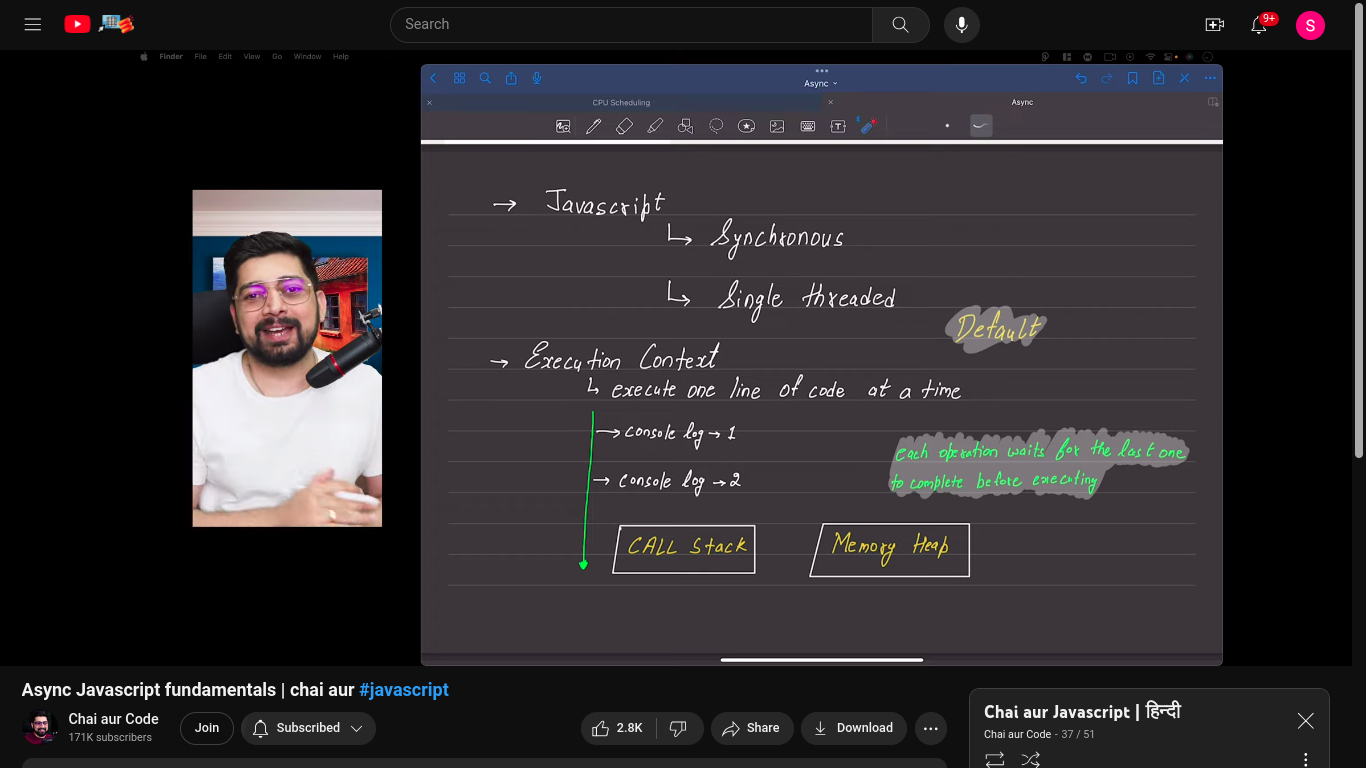 Search
9+
S
Finder File Edit View Go Window Help
Async
CPU Scheduling
Async
T
→ Javascript
↳ Synchronous
↳ Single threaded
Default
→ Execution Context
↳ execute one line of code at a time
→ console log → 1
each operation waits for the last one
to complete before executing
→ console log → 2
CALL Stack
Memory Heap
Async Javascript fundamentals | chai aur #javascript
Chai aur Code
171K subscribers
Join
Subscribed
2.8K
Share
Download
Chai aur Javascript | हिन्दी
Chai aur Code - 37 / 51